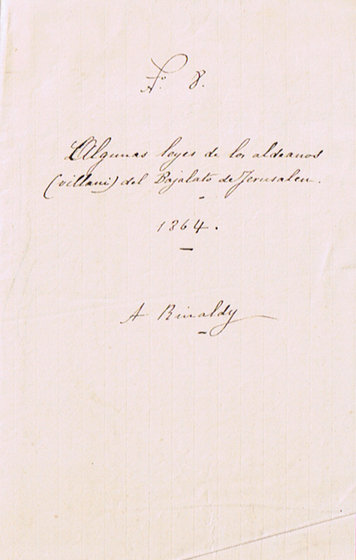 Fº. 8.
Algunas leyes de los aldeanos
(villani) del Bajalato de Jerusalen.
1864.
A Rinaldy